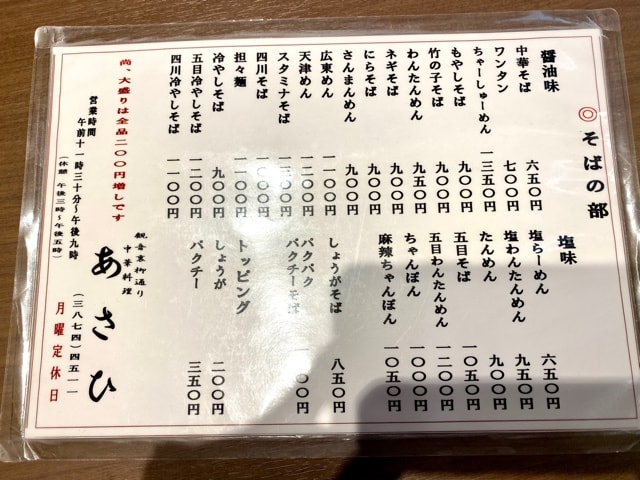 ◎そばの部
醤油味
中華そば 六五〇円
ワンタン 七〇〇円
ちゃーしゅーめん 一三五〇円
もやしそば 九〇〇円
竹の子そば 九〇〇円
わんたんめん 九五〇円
ネギそば 九〇〇円
にらそば 九〇〇円
さんまんめん 九〇〇円
広東めん 一一〇〇円
天津めん 一二〇〇円
スタミナそば 一三〇〇円
四川そば
担々麺 一一〇〇円
冷やしそば 九〇〇円
五目冷やしそば 一二〇〇円
四川冷やしそば 一一〇〇円
塩味
塩らーめん 六五〇円
塩わんたんめん 九五〇円
たんめん 九〇〇円
五目そば 一〇五〇円
五目わんたんめん 一二〇〇円
ちゃんぽん 一〇〇〇円
麻辣ちゃんぽん 一〇五〇円
しょうがそば 八五〇円
パクパク
パクチーそば 一〇〇〇円
トッピング
しょうが 二〇〇円
パクチー 三五〇円
尚、大盛りは全品二〇〇円増しです
営業時間
午前十一時三十分〜午後九時
(休憩 午後三時〜午後五時)
観音裏柳通り
中華料理
あさひ
(三八七四)四五一一
月曜定休日